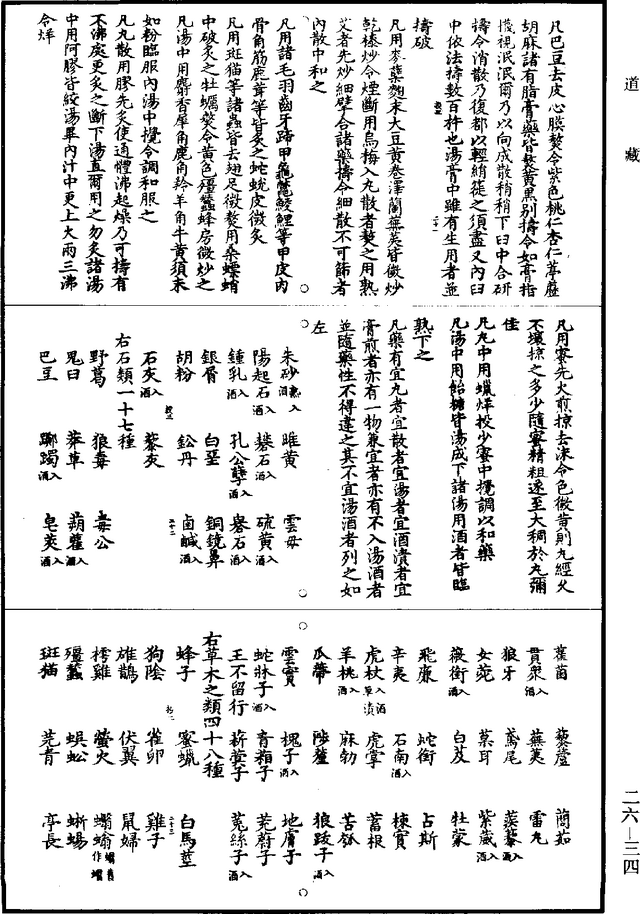 道藏
凡巴豆去皮心膜熬令紫色桃仁杏仁葶藶
胡麻諸有脂膏藥皆熬黃黑別擣令如膏指
㩢視泯泯爾乃以向成散稍稍下臼中合研
擣令消散乃復都以輕絹簁之須盡又內臼
中依法擣數百杵也湯膏中雖有生用者並
擣破
凡用麥蘗麴末大豆黃卷澤蘭蕪荑皆微炒
乾漆炒令煙斷用烏梅入丸散者熬之用熟
艾者先炒細擘合諸藥擣令細散不可篩者
內散中和之
凡用諸毛羽齒牙蹄甲龜鼈鯪鯉等甲皮肉
骨角筋鹿茸等皆炙之蛇蛻皮微炙
凡用斑猫等諸蟲皆去翅足微熬用桑螵蛸
中破炙之牡蠣熬令黃色殭蠶蜂房微炒之
凡湯中用麝香犀角鹿角羚羊角牛黃須末
如粉臨服內湯中攪令調和服之
凡丸散用膠先炙使通體沸起燥乃可擣有
不沸處更炙之斷下湯直爾用之勿炙諸湯
中用阿膠皆絞湯畢內汁中更上火兩三沸
令烊
凡用蜜先火煎掠去沫令色微黃則丸經久
不壞掠之多少隨蜜精粗遂至大稠於丸彌
佳
凡丸中用蠟烊投少蜜中攪調以和藥
凡湯中用飴糖皆湯成下諸湯用酒者皆臨
熟下之
凡藥有宜丸者宜散者宜湯者宜酒漬者宜
膏煎者亦有一物兼宜者亦有不入湯酒者
並隨藥性不得違之其不宜湯酒者列之如
左
朱砂熟入酒 雄黃 雲母
陽起石入酒 礬石入酒 硫黃入酒
鍾乳入酒 孔公孽入酒 礜石入酒
銀屑 白堊 銅鏡鼻
胡粉 鉛丹 鹵鹹入酒
石灰入酒 藜灰
右石類一十七種
野葛 狼毒 毒公
鬼臼 莽草 蒴藋入酒
巴豆 躑躅入酒 皂莢入酒
雚菌 藜蘆 䕡茹
貫眾入酒 蕪荑 雷丸
狼牙 鳶尾 蒺藜入酒
女菀 葈耳 紫葳入酒
薇銜入酒 白及 牡蒙
飛廉 蛇銜 占斯
辛夷 石南入酒 楝實
虎杖入酒單漬 虎掌 蓄根
羊桃入酒 麻勃 苦瓠
瓜蒂 陟釐 狼跋子入酒
雲實 槐子入酒 地膚子
蛇牀子入酒 青葙子 茺蔚子
王不留行 菥蓂子 菟絲子入酒
右草木之類四十八種
蜂子 蜜蠟 白馬莖
狗陰 雀卵 雞子
雄鵲 伏翼 鼠婦
樗雞 螢火 蠮螉
殭蠶 蜈蚣 蜥蜴
斑猫 芫青 亭長
二六—三四